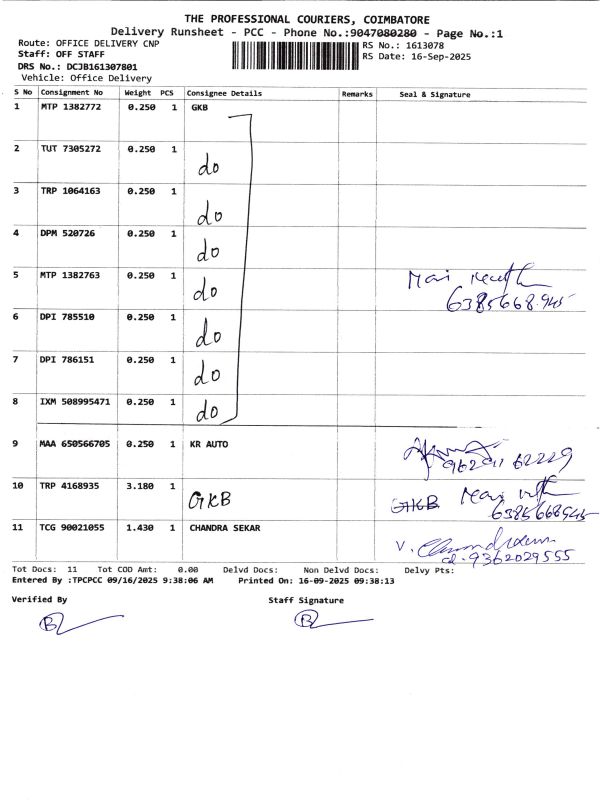 THE PROFESSIONAL COURIERS, COIMBATORE
Delivery Runsheet - PCC - Phone No.:9047080280 - Page No.:1
Route: OFFICE DELIVERY CNP
RS No.: 1613078
Staff: OFF STAFF
RS Date: 16-Sep-2025
DRS No.: DCJB161307801
Vehicle: Office Delivery
S No Consignment No Weight PCS Consignee Details Remarks Seal & Signature
1 MTP 1382772 0.250 1 GKB
2 TUT 7305272 0.250 1 do
3 TRP 1064163 0.250 1 do
4 DPM 520726 0.250 1 do
5 MTP 1382763 0.250 1 do
6385668945
6 DPI 785510 0.250 1 do
7 DPI 786151 0.250 1 do
8 IXM 508995471 0.250 1 do
9 MAA 650566705 0.250 1 KR AUTO
10 TRP 4168935 3.180 1 GKB GKB
6385668945
11 TCG 90021055 1.430 1 CHANDRA SEKAR V.
9362029555
Tot Docs: 11 Tot COD Amt: 0.00 Delvd Docs: Non Delvd Docs: Delvy Pts:
Entered By :TPCPCC 09/16/2025 9:38:06 AM Printed On: 16-09-2025 09:38:13
Verified By Staff Signature
B B